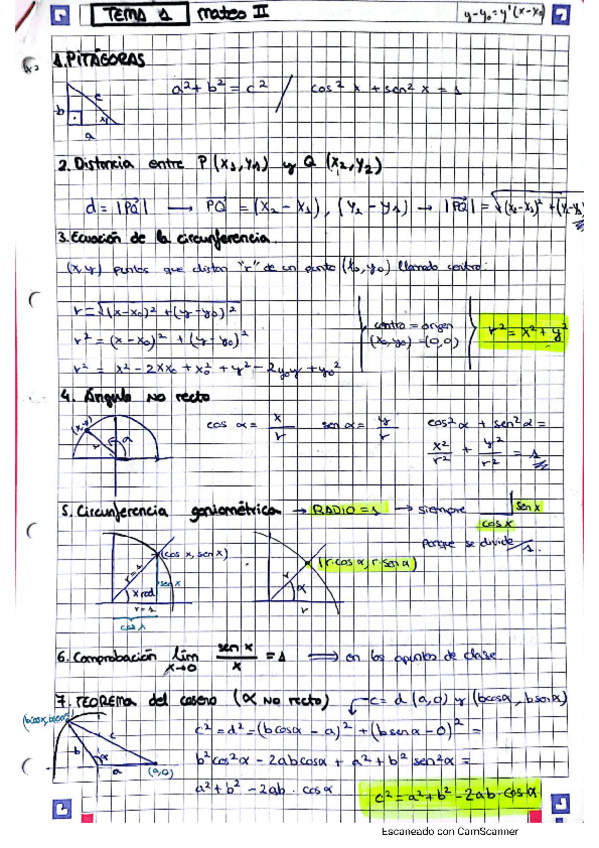 TEMA 1 mates II y-y₀=y'(x-x₀)
1. PITÁGORAS
a²+b²=c² / cos²x+sen²x=1
b c a x
2. Distancia entre P(x₁,y₁) y Q(x₂,y₂)
d=|PQ| → PQ=(x₂-x₁),(y₂-y₁) → |PQ|=√(x₂-x₁)²+(y₂-y₁)
3. Ecuación de la circunferencia.
(x,y) puntos que distan "r" de un punto (x₀,y₀) llamado centro:
r=√(x-x₀)²+(y-y₀)²
r²=(x-x₀)²+(y-y₀)²
r²= x²-2xx₀+x₀²+y²-2y₀y+y₀²
centro=origen
(x₀,y₀)=(0,0)
r²=x²+y²
4. Ángulo no recto
(x,y) r α
cos α= x/r sen α= y/r cos²α+sen²α=
x²/r² + y²/r² = 1
5. Circunferencia goniométrica → RADIO=1 → siempre sen x
cos x
porque se divide/1.
(cos x, sen x)
r=1 sen x
x rad
r=1
cos x
(r·cos α, r·sen α)
r α
r
6. Comprobación lim x→0 sen x/x = 1 ⟹ en los apuntes de clase
7. TEOREMA del coseno (α no recto) c=d(a,0) y (bcosα, bsenα)
(bcosα, bsenα)
b c α a (a,0)
c²=d²=(bcosα-a)²+(bsenα-0)²=
b²cos²α-2abcosα+a²+b²sen²α=
a²+b²-2ab·cosα
c²=a²+b²-2ab·cosα
Escaneado con CamScanner